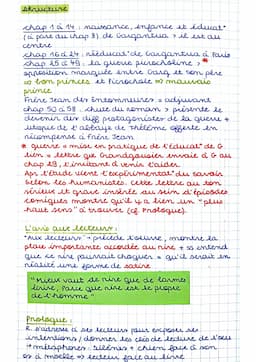 Structure
chap 1 à 14 : naissance, enfance et éducat°
(à part du chap 8) de Gargantua > il est au
centre
chap 16 à 24 : rééducat° de Gargantua à Paris
chap 25 à 49 : la guerre picrocholine > *
opposition marquée entre Garg et son père
⇒ bon princes et Picrochole ⇒ mauvais
prince
Frère Jean des Entommeures = adjuvant
chap 50 à 58 : chute du roman > présente le
devenir des diff protagonistes de la guerre +
utopie de l'abbaye de Thélème offerte en
récompense à Frère Jean
* guerre = mise en pratique de l'éducat° de G
lien = lettre que Grandgousier envoie à G au
chap 29, l'invitant à venir l'aider.
Apr. l'étude vient l'expérimentat° du savoir
selon les humanistes. Cette lettre au ton
sérieux et grave insérée au sein d'épisodes
comiques montre qu'il y a bien un "plus
haut sens" à trouver (cf Prologue).
L'avis aux lecteurs :
"Aux lecteurs" → précède l'œuvre, montre la
place importante accordée au rire + ss entend
que ce rire pourrait choquer = qu'il serait en
réalité une forme de satire
"Mieux vaut de rire que de larmes
écrire, Parce que rire est le propre
de l'homme"
Prologue :
R. s'adresse à ses lecteurs pour exposer ses
intentions / donner les clés de lecture de l'œuv
→ métaphores : Silènes + chien face à son
os à moelle ⇒ lecteur face au livre